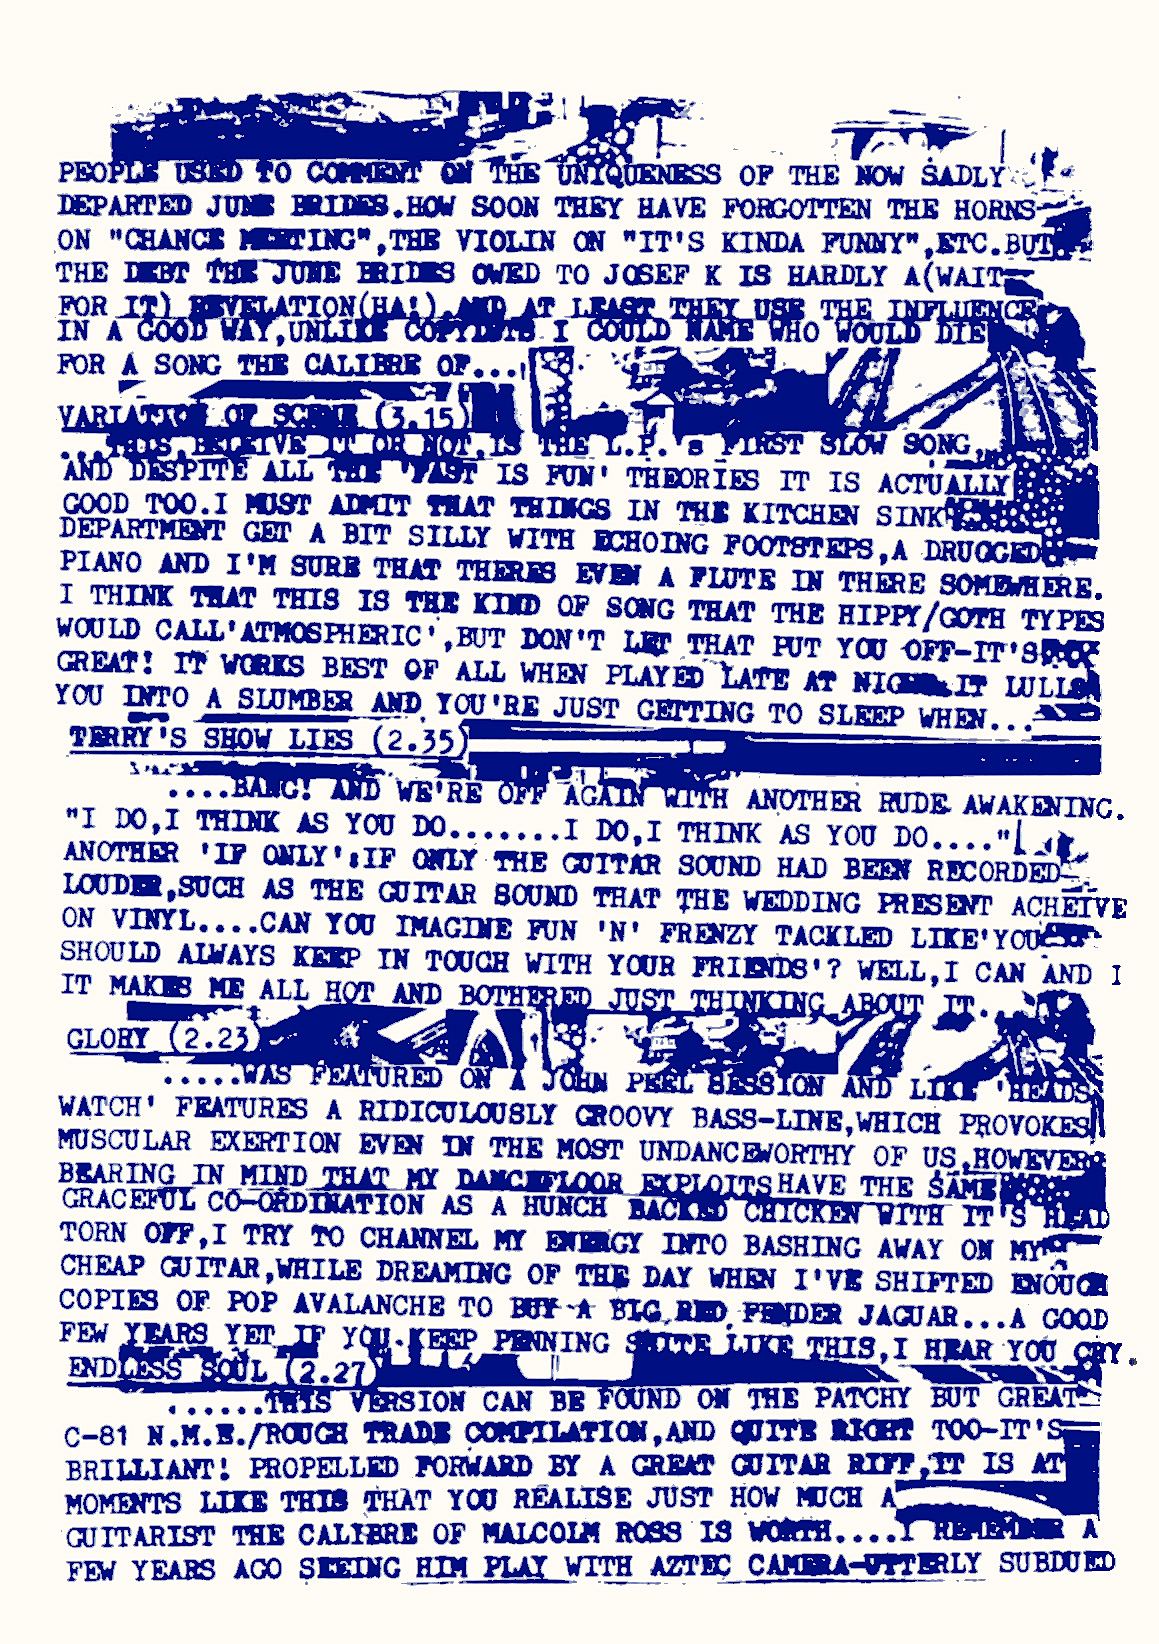 PEOPLE USED TO COMMENT ON THE UNIQUENESS OF THE NOW SADLY
DEPARTED JUNE BRIDES.HOW SOON THEY HAVE FORGOTTEN THE HORNS
ON "CHANCE MEETING",THE VIOLIN ON "IT'S KINDA FUNNY",ETC.BUT
THE DEBT THE JUNE BRIDES OWED TO JOSEF K IS HARDLY A(WAIT
FOR IT) REVELATION(HA!).AND AT LEAST THEY USE THE INFLUENCE
IN A GOOD WAY,UNLIKE COPYISTS I COULD NAME WHO WOULD DIE
FOR A SONG THE CALIBRE OF...
VARIATION OF SCENE (3.15)
...THIS,BELEIVE IT OR NOT,IS THE L.P.'s FIRST SLOW SONG
AND DESPITE ALL THE 'FAST IS FUN' THEORIES IT IS ACTUALLY
GOOD TOO.I MUST ADMIT THAT THINGS IN THE KITCHEN SINK
DEPARTMENT GET A BIT SILLY WITH ECHOING FOOTSTEPS,A DRUGGED
PIANO AND I'M SURE THAT THERES EVEN A FLUTE IN THERE SOMEWHERE.
I THINK THAT THIS IS THE KIND OF SONG THAT THE HIPPY/GOTH TYPES
WOULD CALL'ATMOSPHERIC',BUT DON'T LET THAT PUT YOU OFF-IT'S
GREAT! IT WORKS BEST OF ALL WHEN PLAYED LATE AT NIGHT.IT LULLS
YOU INTO A SLUMBER AND YOU'RE JUST GETTING TO SLEEP WHEN...
TERRY'S SHOW LIES (2.35)
....BANG! AND WE'RE OFF AGAIN WITH ANOTHER RUDE AWAKENING.
"I DO,I THINK AS YOU DO.......I DO,I THINK AS YOU DO...."
ANOTHER 'IF ONLY':IF ONLY THE GUITAR SOUND HAD BEEN RECORDED
LOUDER,SUCH AS THE GUITAR SOUND THAT THE WEDDING PRESENT ACHEIVE
ON VINYL....CAN YOU IMAGINE FUN 'N' FRENZY TACKLED LIKE'YOU
SHOULD ALWAYS KEEP IN TOUCH WITH YOUR FRIENDS'? WELL,I CAN AND I
IT MAKES ME ALL HOT AND BOTHERED JUST THINKING ABOUT IT...
GLORY (2.23)
.....WAS FEATURED ON A JOHN PEEL SESSION AND LIKE 'HEADS
WATCH' FEATURES A RIDICULOUSLY GROOVY BASS-LINE,WHICH PROVOKES
MUSCULAR EXERTION EVEN IN THE MOST UNDANCEWORTHY OF US,HOWEVER
BEARING IN MIND THAT MY DANCEFLOOR EXPLOITS HAVE THE SAME
GRACEFUL CO-ORDINATION AS A HUNCH BACKED CHICKEN WITH IT'S HEAD
TORN OFF,I TRY TO CHANNEL MY ENERGY INTO BASHING AWAY ON MY
CHEAP GUITAR,WHILE DREAMING OF THE DAY WHEN I'VE SHIFTED ENOUGH
COPIES OF POP AVALANCHE TO BUY A BIG RED FENDER JAGUAR...A GOOD
FEW YEARS YET IF YOU KEEP PENNING SHITE LIKE THIS,I HEAR YOU CRY.
ENDLESS SOUL (2.27)
......THIS VERSION CAN BE FOUND ON THE PATCHY BUT GREAT
C-81 N.M.E./ROUGH TRADE COMPILATION,AND QUITE RIGHT TOO-IT'S
BRILLIANT! PROPELLED FORWARD BY A GREAT GUITAR RIFF,IT IS AT
MOMENTS LIKE THIS THAT YOU REALISE JUST HOW MUCH A
GUITARIST THE CALIBRE OF MALCOLM ROSS IS WORTH....I REMEMBER A
FEW YEARS AGO SEEING HIM PLAY WITH AZTEC CAMERA-UTTERLY SUBDUED